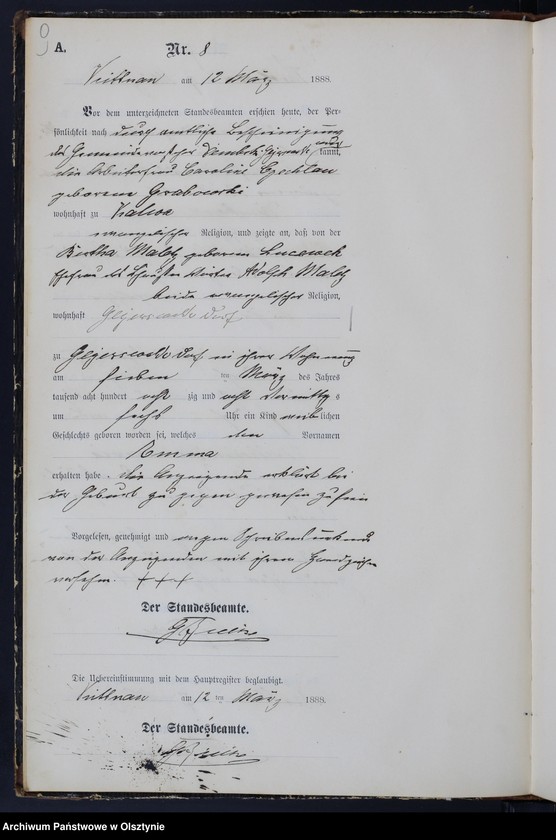 9
A.
Nr. 8
am 12 März 1888.
Vor dem unterzeichneten Standesbeamten erschien heute, der Per-
sönlichkeit nach durch amtliche Bescheinigung
des Gemeindevorsteher kannt,
die Arbeiterfrau Caroline
geborene Grabowski
wohnhaft zu
evangelischer Religion, und zeigte an, daß von der
Bertha Maltz geborene
Ehefrau des Adolph Maltz
beide evangelischer Religion,
wohnhaft Geyerswalde Dorf
zu Geyerswalde Dorf in ihrer Wohnung
am sieben ten März des Jahres
tausend acht hundert acht zig und acht Vormittag s
um sechs Uhr ein Kind weib lichen
Geschlechts geboren worden sei, welches den Vornamen
Emma
erhalten habe. die Anzeigende erklärt bei
der Geburt zugegen gewesen zu sein
Vorgelesen, genehmigt und wegen Schreibens
von der Anzeigenden mit ihren Handzeichen
versehen. +++
Der Standesbeamte.
Die Uebereinstimmung mit dem Hauptregister beglaubigt.
am 12 ten März 1888.
Der Standesbeamte.
Archiwum Państwowe w Olsztynie